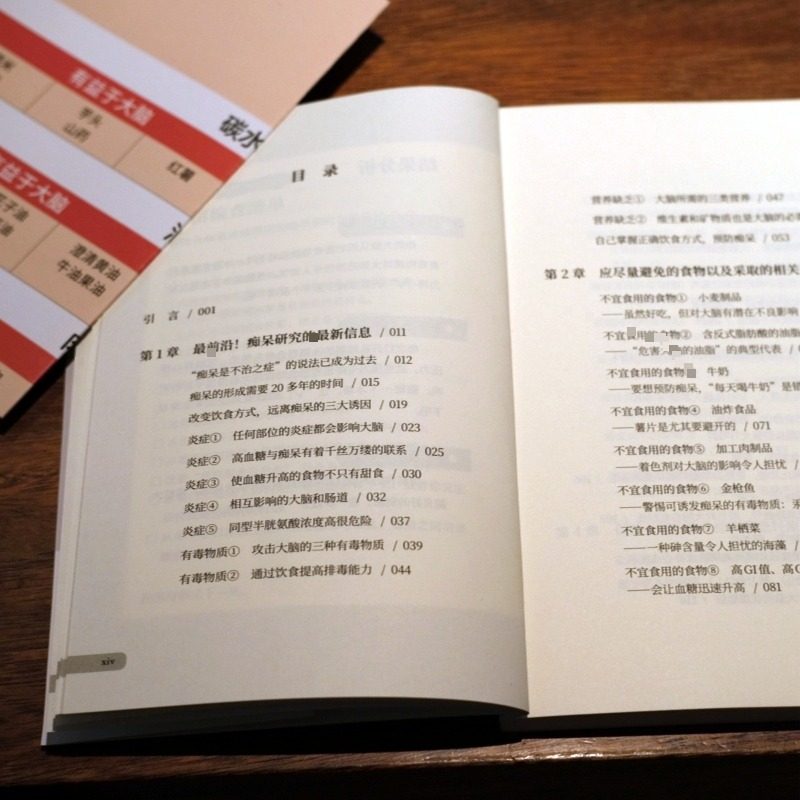 有益于大脑
芋头
山药
碳水
红薯
有益于大脑
澄清黄油
牛油果油
目 录
引 言 / 001
第 1 章 最前沿！痴呆研究的最新信息 / 011
“痴呆是不治之症”的说法已成为过去 / 012
痴呆的形成需要 20 多年的时间 / 015
改变饮食方式，远离痴呆的三大诱因 / 019
炎症① 任何部位的炎症都会影响大脑 / 023
炎症② 高血糖与痴呆有着千丝万缕的联系 / 025
炎症③ 使血糖升高的食物不只有甜食 / 030
炎症④ 相互影响的大脑和肠道 / 032
炎症⑤ 同型半胱氨酸浓度高很危险 / 037
有毒物质① 攻击大脑的三种有毒物质 / 039
有毒物质② 通过饮食提高排毒能力 / 044
xiv
营养缺乏① 大脑所需的三类营养 / 047
营养缺乏② 维生素和矿物质也是大脑的必
自己掌握正确饮食方式，预防痴呆 / 053
第 2 章 应尽量避免的食物以及采取的相关
不宜食用的食物① 小麦制品
——虽然好吃，但对大脑有潜在不良影响
不宜食用的食物② 含反式脂肪酸的油脂
的油脂”的典型代表 / 0
不宜食用的食物 牛奶
——要想预防痴呆，“每天喝牛奶”是错
不宜食用的食物④ 油炸食品
——薯片是尤其要避开的 / 071
不宜食用的食物⑤ 加工肉制品
——着色剂对大脑的影响令人担忧 /
不宜食用的食物⑥ 金枪鱼
——警惕可诱发痴呆的有毒物质：汞
不宜食用的食物⑦ 羊栖菜
——一种砷含量令人担忧的海藻 /
不宜食用的食物⑧ 高GI值、高G
——会让血糖迅速升高 / 081